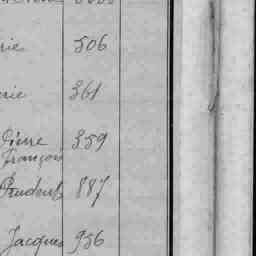 rie 506
rie 361
Pierre 359
François
Prudent 887
Jacques 956